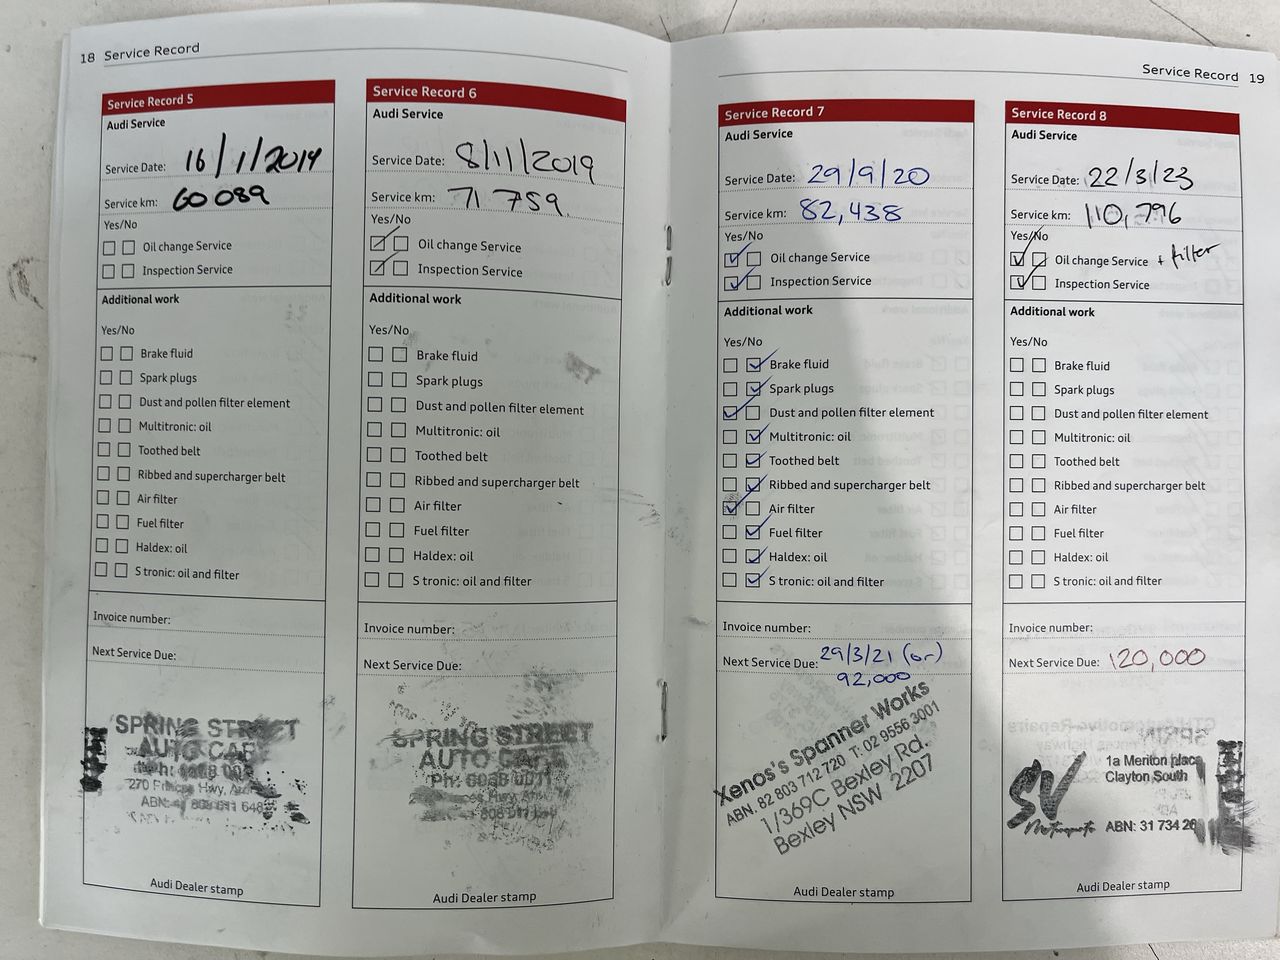 18 Service Record
Service Record 5
Audi Service
Service Date: 16/1/2019
Service km: 60 089
Yes/No
Oil change Service
Inspection Service
Additional work
Yes/No
Brake fluid
Spark plugs
Dust and pollen filter element
Multitronic: oil
Toothed belt
Ribbed and supercharger belt
Air filter
Fuel filter
Haldex: oil
S tronic: oil and filter
Invoice number:
Next Service Due:
SPRING STREET
AUTO
270 Hwy,
ABN:
Audi Dealer stamp
Service Record 6
Audi Service
Service Date: 8/11/2019
Service km: 71 759
Yes/No
Oil change Service
Inspection Service
Additional work
Yes/No
Brake fluid
Spark plugs
Dust and pollen filter element
Multitronic: oil
Toothed belt
Ribbed and supercharger belt
Air filter
Fuel filter
Haldex: oil
S tronic: oil and filter
Invoice number:
Next Service Due:
SPRING STREET
AUTO
Ph:
Hwy
Audi Dealer stamp
Service Record 19
Service Record 7
Audi Service
Service Date: 29/9/20
Service km: 82,438
Yes/No
Oil change Service
Inspection Service
Additional work
Yes/No
Brake fluid
Spark plugs
Dust and pollen filter element
Multitronic: oil
Toothed belt
Ribbed and supercharger belt
Air filter
Fuel filter
Haldex: oil
S tronic: oil and filter
Invoice number:
Next Service Due: 29/3/21 (or)
92,000
Xenos's Spanner Works
ABN. 82 803 712 720 T: 02 9556 3001
1/369C Bexley Rd.
Bexley NSW 2207
Audi Dealer stamp
Service Record 8
Audi Service
Service Date: 22/3/23
Service km: 110,796
Yes/No
Oil change Service + filter
Inspection Service
Additional work
Yes/No
Brake fluid
Spark plugs
Dust and pollen filter element
Multitronic: oil
Toothed belt
Ribbed and supercharger belt
Air filter
Fuel filter
Haldex: oil
S tronic: oil and filter
Invoice number:
Next Service Due: 120,000
1a Meriton place
Clayton South
SV
ABN: 31 734 26
Audi Dealer stamp